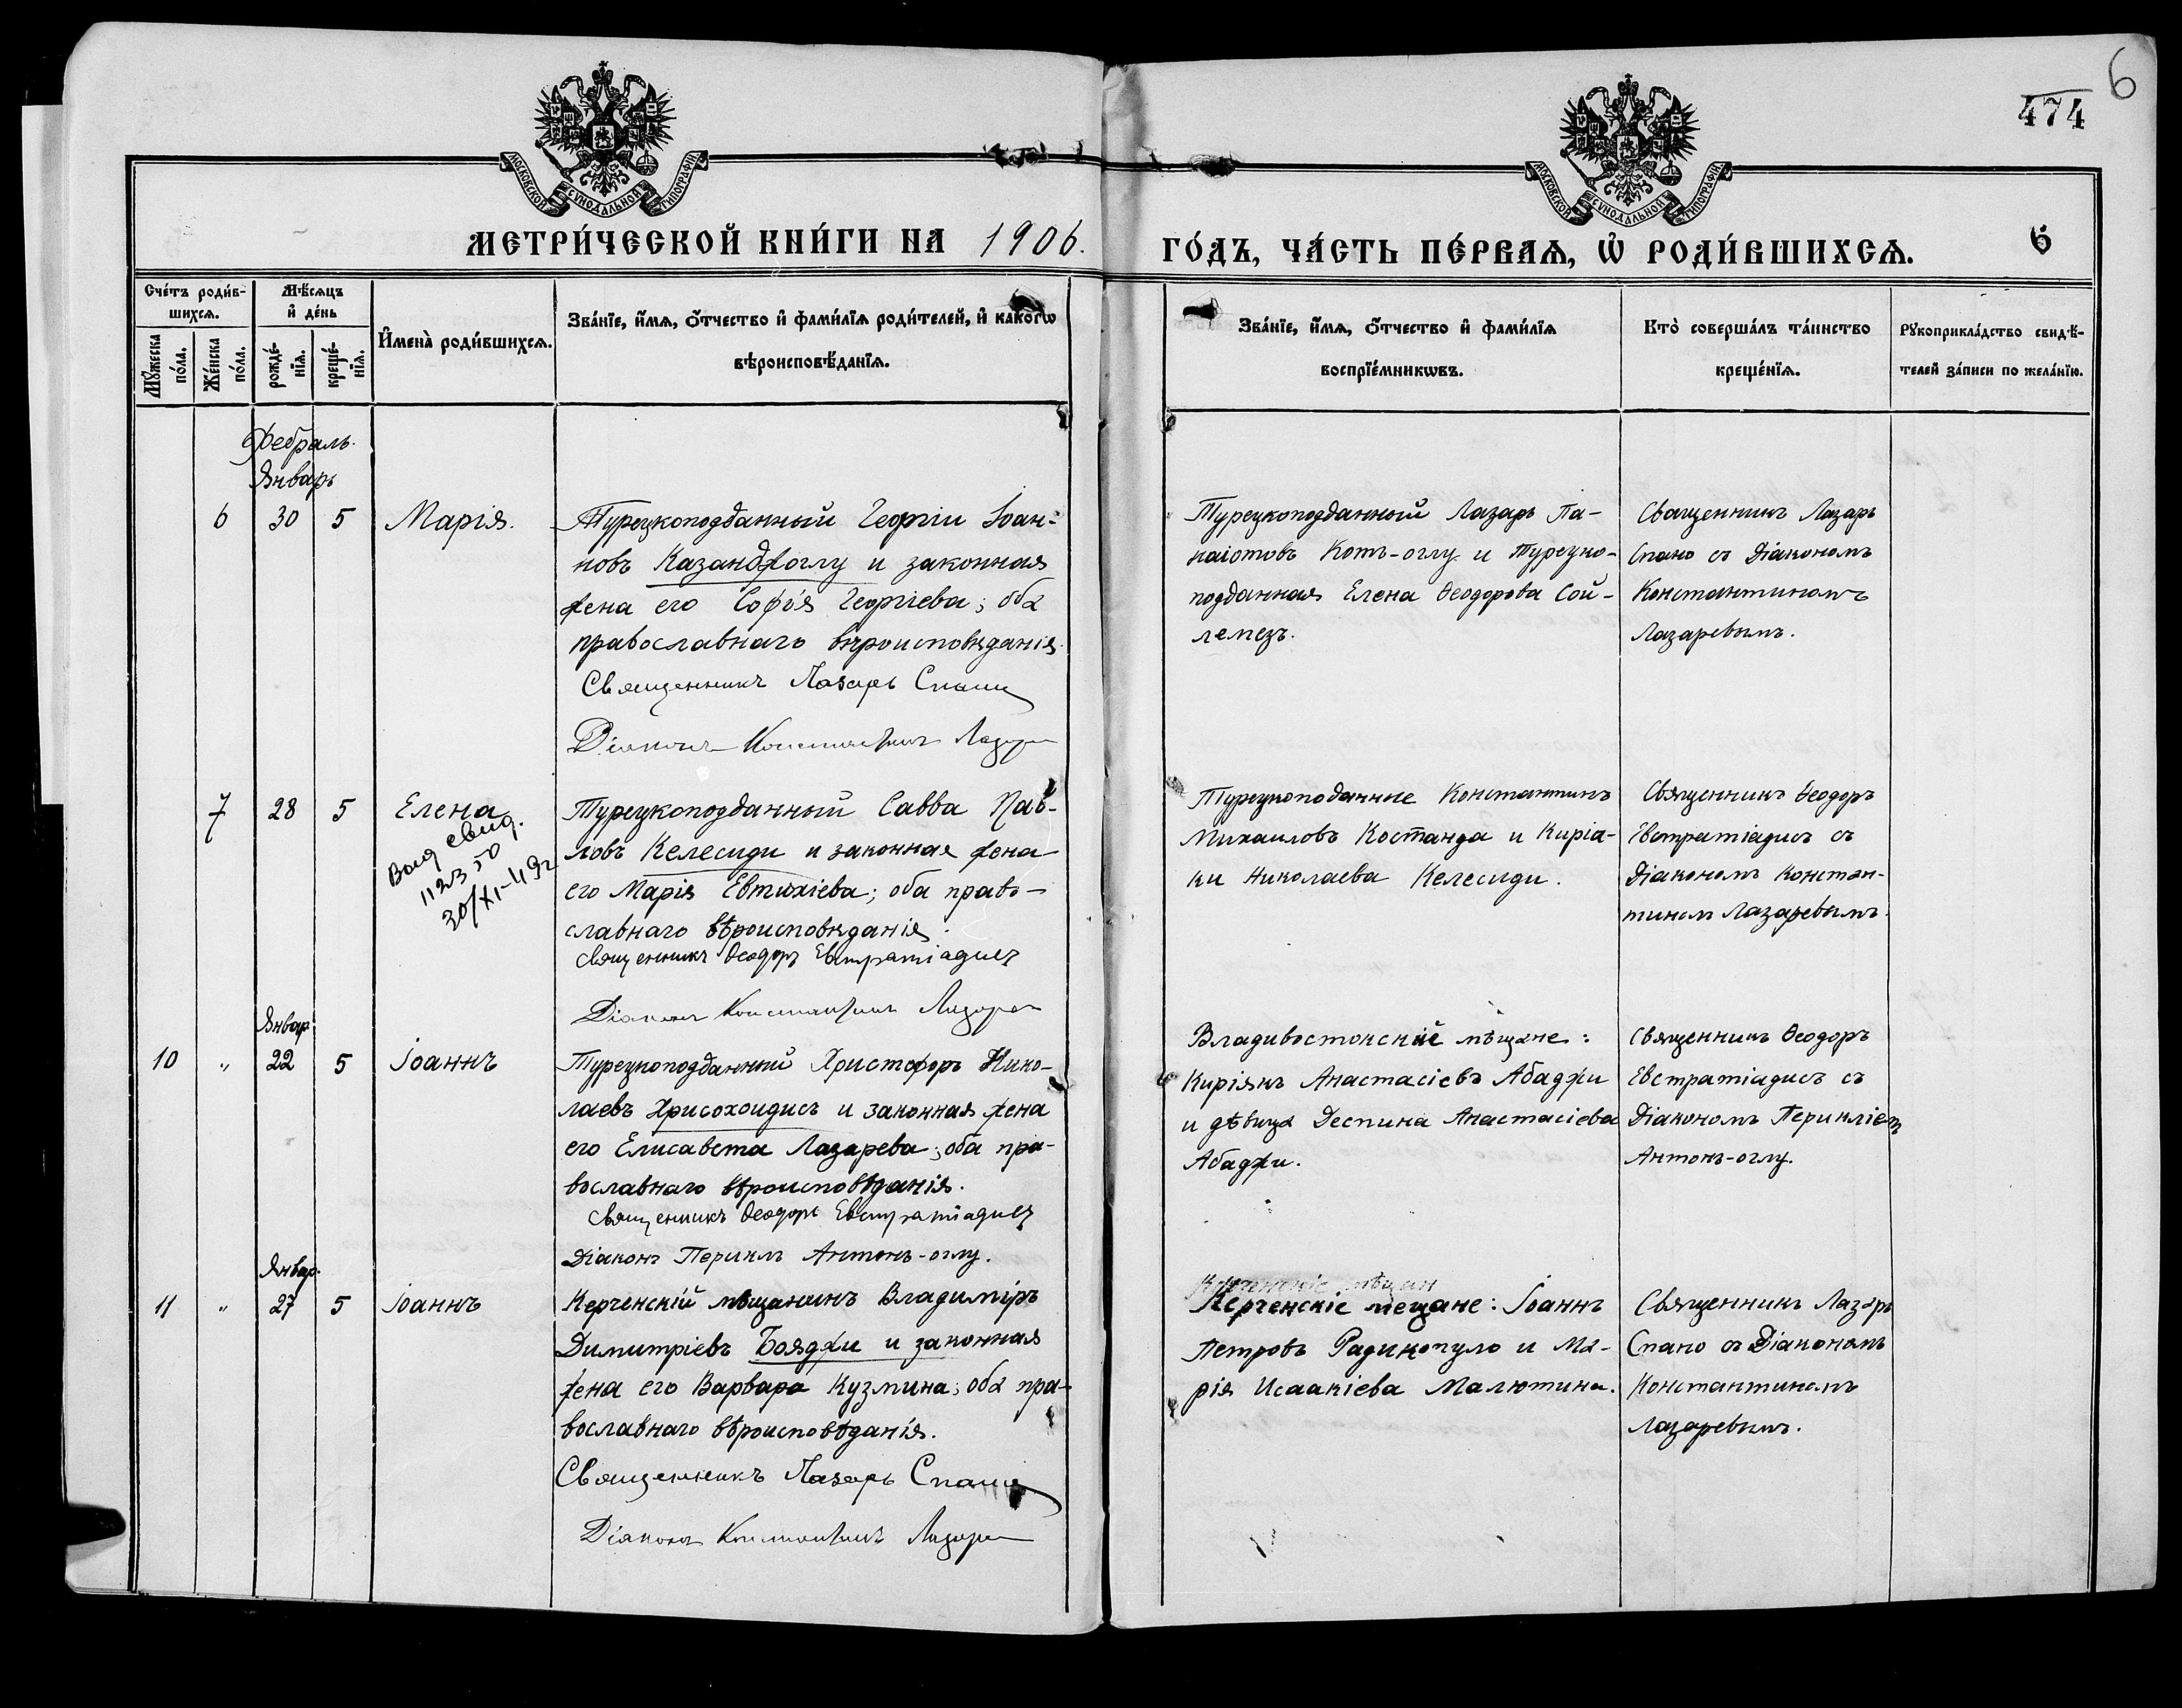 6
474
МОСКОВСКОЙ СѴНОДАЛЬНОЙ ТИПОГРАФІИ
МОСКОВСКОЙ СѴНОДАЛЬНОЙ ТИПОГРАФІИ
МЕТРИ́ЧЕСКОЙ КНИ́ГИ НА 1906.
ГО́ДЪ, ЧА́СТЬ ПЕ́РВАѦ, Ѡ҆ РОДИ́ВШИХСѦ.
6
Сче́тъ роди́в-
шихсѧ.
Мꙋ́жеска по́ла.
Же́нска по́ла.
Мѣ́сѧцъ и҆ де́нь
рожде́-нїѧ.
креще́-нїѧ.
И҆мена̀ роди́вшихсѧ.
Зва́нїе, и҆́мѧ, ѻ҆́тчество и҆ фами́лїѧ роди́телей, и҆ како́гѡ
вѣроисповѣ́данїѧ.
Зва́нїе, и҆́мѧ, ѻ҆́тчество и҆ фами́лїѧ
воспрїе́мникѡвъ.
Кто̀ соверша́лъ та́инство
креще́нїѧ.
Рꙋкоприкла́дство свидѣ́-
телей за́писи по жела́нїю.
Февраль.
Январь
6 30 5 Марія.
Турецкоподданный Георгій Іоан-
новъ Казанджоглу и законная
жена его Софія Георгіева; оба
православнаго вѣроисповѣданія.
Священникъ Лазарь Спано
Діаконъ Константинъ
Турецкоподданный Лазарь Па-
наіотовъ Котъ-оглу и турецко-
подданная Елена Ѳеодорова Сой-
лемезъ.
Священникъ Лазарь
Спано съ Діакономъ
Константиномъ
Лазаревымъ.
7 28 5 Елена
Выд свид.
112350
30/XI-49г
Турецкоподданный Савва Пав-
ловъ Келесиди и законная жена
его Марія Евтихіева; оба право-
славнаго вѣроисповѣданія.
Священникъ Ѳеодоръ Евстратіадисъ
Діаконъ Константинъ
Турецкоподанные Константинъ
Михаиловъ Костанда и Киріа-
ки Николаева Келесиди.
Священникъ Ѳеодоръ
Евстратіадисъ съ
Діакономъ Констан-
тиномъ Лазаревымъ.
Январ.
10 " 22 5 Іоаннъ
Турецкоподданный Христофоръ Нико-
лаевъ Хрисохоидисъ и законная жена
его Елисавета Лазарева; оба пра-
вославнаго вѣроисповѣданія.
Священникъ Ѳеодоръ Евстратіадисъ
Діаконъ Периклъ Антонъ-оглу.
Владивостокскіе мѣщане:
Киріякъ Анастасіевъ Абаджи
и дѣвица Деспина Анастасіева
Абаджи.
Священникъ Ѳеодоръ
Евстратіадисъ съ
Діакономъ Перикліемъ
Антонъ-оглу.
Январ.
11 " 27 5 Іоаннъ
Керченскій мѣщанинъ Владиміръ
Димитріевъ Бояджи и законная
жена его Варвара Кузмина; оба пра-
вославнаго вѣроисповѣданія.
Священникъ Лазарь Спано
Діаконъ Константинъ
Керченскіе мѣщан
Керченскіе мещане: Іоаннъ
Петровъ Радинопуло и Ма-
рія Исаакіева Малютина.
Священникъ Лазарь
Спано съ Діакономъ
Константиномъ
Лазаревымъ.